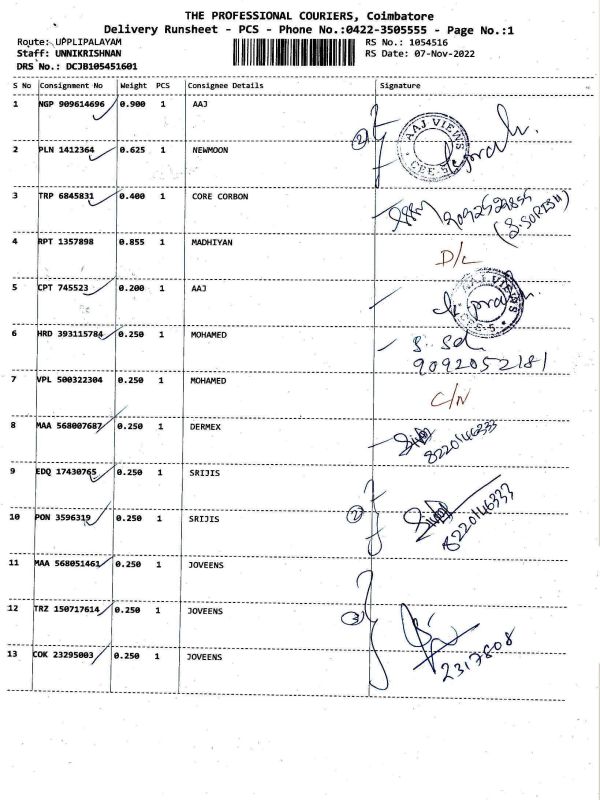 THE PROFESSIONAL COURIERS, Coimbatore
Delivery Runsheet - PCS - Phone No.:0422-3505555 - Page No.:1
Route: UPPLIPALAYAM RS No.: 1054516
Staff: UNNIKRISHNAN RS Date: 07-Nov-2022
DRS No.: DCJB105451601
S No Consignment No Weight PCS Consignee Details Signature
1 NGP 909614696 0.900 1 AAJ
2 PLN 1412364 0.625 1 NEWMOON
② AAJ VIEWS CBE-5
3 TRP 6845831 0.400 1 CORE CORBON
(S.SORISH)
4 RPT 1357898 0.855 1 MADHIYAN D/L
5 CPT 745523 0.200 1 AAJ AAJ VIEWS CBE-5
6 HRD 393115784 0.250 1 MOHAMED
9092052181
7 VPL 500322304 0.250 1 MOHAMED C/N
8 MAA 568007687 0.250 1 DERMEX 8220146333
9 EDQ 17430765 0.250 1 SRIJIS
10 PON 3596319 0.250 1 SRIJIS ② 8220146333
11 MAA 568051461 0.250 1 JOVEENS
12 TRZ 150717614 0.250 1 JOVEENS ③
13 COK 23295003 0.250 1 JOVEENS 2317808